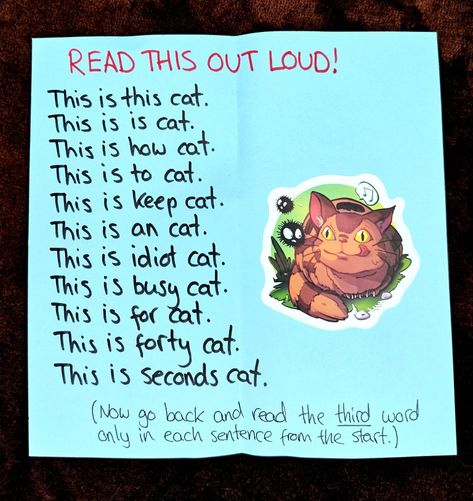 READ THIS OUT LOUD!
This is this cat.
This is is cat.
This is how cat.
This is to cat.
This is keep cat.
This is an cat.
This is idiot cat.
This is busy cat.
This is for cat.
This is forty cat.
This is seconds cat.
(Now go back and read the third word
only in each sentence from the start.)